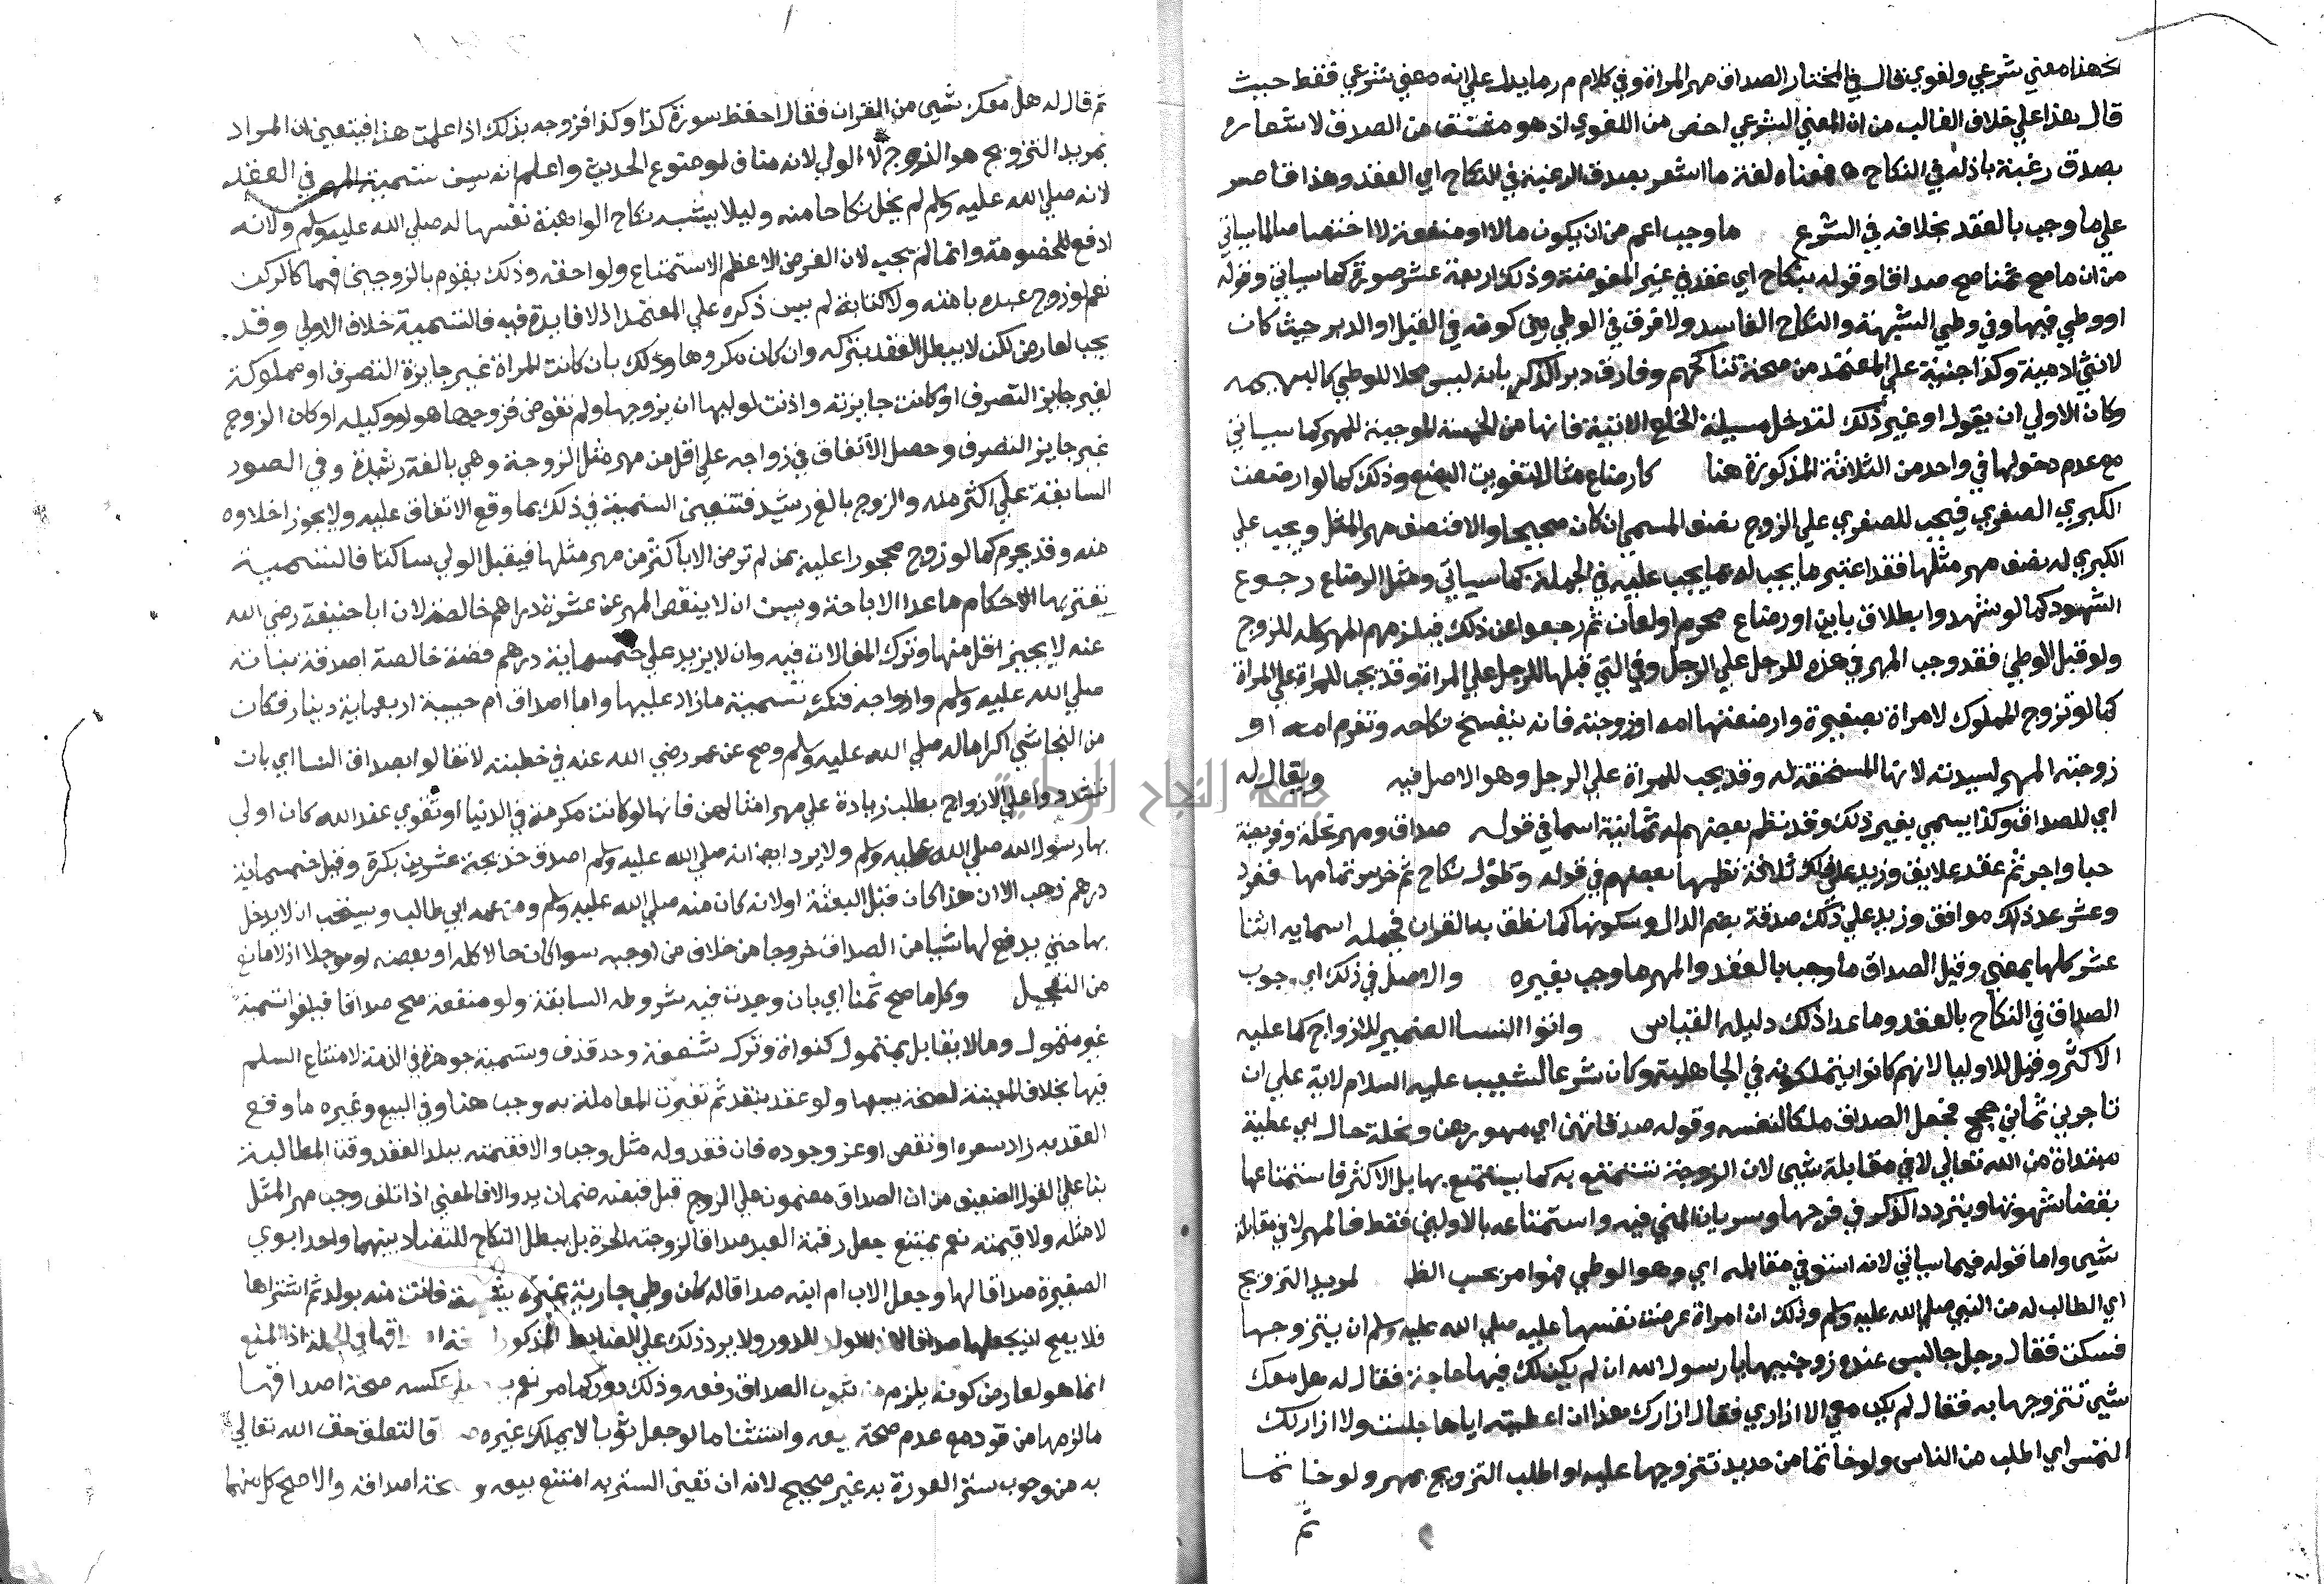 فهذا معني شرعي ولغوي قال في المختار الصداق مهر المراة وفي كلام م ر ما يدل علي انه معني شرعي فقط حيث
قال هذا علي خلاف الغالب من ان المعني الشرعي اخص من اللغوي اذ هو مشتق من الصدق لاشعاره
بصدق رغبة باذله في النكاح فمعناه لغة ما اشعر بصدق الرغبة في النكاح اي العقد وهذا قاصر
علي ما وجب بالعقد بخلافه في الشرع ما وجب اعم من ان يكون مالا او منفعة لا اختصاصا لما سياتي
من ان ما صح ثمنا صح صداقا وقوله بنكاح اي عقد في غير المفوضة وذلك اربعة عشر صورة كما سياتي وقوله
او وطي فيها وفي وطي الشبهة والنكاح الفاسد ولا فرق في الوطي بين كونه في القبل او الدبر حيث كان
لانثي ادمية وكذا جنية علي المعتمد من صحة تناكحهم وفارق دبر الذكر بانه ليس محلا للوطي كالبهيمه
وكان الاولي ان يقول او غير ذلك لتدخل مسيلة الخلع الاتية فانها من الخمسة الموجبة للمهر كما سياتي
مع عدم دخولها في واحد من الثلاثة المذكورة هنا كارضاع مثال لتفويت البضع وذلك كما لو ارضعت
الكبري الصغري فيجب للصغري علي الزوج نصف المسمي ان كان صحيحا والا فنصف مهر المثل ويجب علي
الكبري له نصف مهر مثلها فقد اعتبر ما يجب له بما يجب عليه في الجملة كما سياتي ومثل الرضاع رجوع
الشهود كما لو شهدوا بطلاق باين او رضاع محرم او لعان ثم رجعوا عن ذلك فيلزمهم المهر كله للزوج
ولو قبل الوطي فقد وجب المهر في هذه للرجل علي الرجل وفي التي قبلها للرجل علي المراة وقد يجب للمراة علي المراة
كما لو تزوج المملوك لامراة بصغيرة وارضعتها امه او زوجته فانه ينفسخ نكاحه وتغرم امه او
زوجته المهر لسيدته لانها المستحقة له وقد يجب للمراة علي الرجل وهو الاصل فيه ويقال له
اي للصداق وكذا يسمي بغير ذلك وقد نظم بعضهم له ثمانية اسما في قوله صداق ومهر نحلة وفريضة
حبا واجر ثم عقد علايق وزيد علي ذلك ثلاثة نظمها بعضهم في قوله وطول نكاح ثم خرس تمامها ففرد
وعشر عد ذلك موافق وزيد علي ذلك صدقة بضم الدال وسكونها كما نطق به القران فجملة اسمايه اثنا
عشر كلها بمعني وقيل الصداق ما وجب بالعقد والمهر ما وجب بغيره والاصل في ذلك اي وجوب
الصداق في النكاح بالعقد وما عدا ذلك دليله القياس واتوا النسا الضمير للازواج كما عليه
الاكثر وقيل للاوليا لانهم كانوا يتملكونه في الجاهلية وكان شرعا لشعيب عليه السلام لاية علي ان
تاجرني ثماني حجج فجعل الصداق ملكا لنفسه وقوله صدقاتهن اي مهورهن ونحلة حال اي عطية
مبتداة من الله تعالي لا في مقابلة شيى لان الزوجة تستمتع به كما يستمتع بها بل الاكثر فاستمتاعها
بقضا شهوتها ويتردد الذكر في فرجها وسريان المني فيه واستمتاعه بالاولين فقط فالمهر لا في مقابلة
شيى واما قوله فيما سياتي لانه استوفي مقابله اي وهو الوطي فهو امر بحسب الظ لمريد التزويج
اي الطالب له من النبي صلي الله عليه وسلم وذلك ان امراة عرضت نفسها عليه صلي الله عليه وسلم ان يتزوجها
فسكت فقال رجل جالس عنده زوجنيها يا رسول الله ان لم يكن لك فيها حاجة فقال له هل معك
شيى تتزوجها به فقال لم يكن معي الا ازاري فقال ازارك هذا ان اعطيته اياها جلست ولا ازار لك
التمس اي اطلب من الناس ولو خاتما من حديد تتزوجها عليه او اطلب التزويج بمهر ولو خاتما
ثم
ثم قال له هل معك شيى من القران فقال احفظ سورة كذا وكذا فزوجه بذلك اذا علمت هذا فيتعين ان المراد
بمريد التزويج هو الزوج لا الولي لانه مناف لموضوع الحديث واعلم انه يسن تسمية المهر في العقد
لانه صلي الله عليه وسلم لم يخل نكاحا منه وليلا يشبه نكاح الواهبة نفسها له صلي الله عليه وسلم ولانه
ادفع للخصومة وانما لم يجب لان الغرض الاعظم الاستمتاع ولواحقه وذلك يقوم بالزوجين فهما كالركن
نعم لو زوج عبده بامته ولا كتابة لم يسن ذكره علي المعتمد اذ لا فايدة فيه فالتسمية خلاف الاولي وقد
يجب لعارض لكن لا يبطل العقد بتركه وان كان مكروها وذلك بان كانت المراة غير جايزة التصرف او مملوكة
لغير جايز التصرف او كانت جايزته واذنت لوليها ان يزوجها ولم تفوض فزوجها هو او وكيله او كان الزوج
غير جايز التصرف وحصل الاتفاق في زواجه علي اقل من مهر مثل الزوجة وهي بالغة رشيدة وفي الصور
السابقة علي اكثر منه والزوج بالغ رشيد فتتعين التسمية في ذلك بما وقع الاتفاق عليه ولا يجوز اخلاوه
منه وقد يحرم كما لو زوج محجورا عليه بمن لم ترض الا باكثر من مهر مثلها فيقبل الولي ساكتا فالتسمية
تعتريها الاحكام ما عدا الاباحة ويسن ان لا ينقص المهر عن عشرة دراهم خالصة لان ابا حنيفة رضي الله
عنه لا يجيز اقل منها وترك المغالات فيه وان لا يزيد علي خمسماية درهم فضة خالصة اصدقة بناته
صلي الله عليه وسلم وازواجه فتكره تسمية ما زاد عليها واما اصداق ام حبيبة اربعماية دينار فكان
من النجاشي اكراما له صلي الله عليه وسلم وصح عن عمر رضي الله عنه في خطبته لا تغالوا بصداق النسا اي بان
تشددوا علي الازواج بطلب زيادة علي مهر امثالهن فانها لو كانت مكرمة في الدنيا او تقوي عند الله كان اولي
بها رسول الله صلي الله عليه وسلم ولا يرد ايضا انه صلي الله عليه وسلم اصدق خديجة عشرين بكرة وقيل خمسماية
درهم ذهب الا ان هذا كان قبل البعثة او لانه كان منه صلي الله عليه وسلم ومن عمه ابي طالب ويستحب ان لا يدخل
بها حتي يدفع لها شيا من الصداق خروجا من خلاف من اوجبه سوا كان حالا كله او بعضه او موجلا اذ لا مانع
من التعجيل وكل ما صح ثمنا اي بان وجدت فيه شروطه السابقة ولو منفعة صح صداقا فيلغو تسمية
غير متمول وما لا يقابل بمتمول كنواة وترك شفعة وحد قذف وتسمية جوهرة في الذمة لامتناع السلم
فيها بخلاف المعينة لصحة بيعها ولو عقد بنقد ثم تغيرت المعاملة به وجب هنا وفي البيع وغيره ما وقع
العقد به زاد سعره او نقص او عز وجوده فان فقد وله مثل وجب والا فقيمته ببلد العقد وقت المطالبة
بنا علي القول الضعيف من ان الصداق مضمون علي الزوج قبل قبضه ضمان يد والا فالمعين اذا تلف وجب مهر المثل
لا مثله ولا قيمته نعم يمتنع جعل رقبة العبد صداقا لزوجته الحرة بل يبطل النكاح للتضاد بينهما واحد ابوي
الصغيرة صداقا لها وجعل الاب ام ابنه صداقا له كان وطي جارية غيره فاتت منه بولد ثم اشتراها
فلا يصح ان يجعلها صداقا للدور ولا يرد ذلك علي الضابط المذكور في الجملة اذ المنع
انما هو لعارض كونه يلزم من ثبوت الصداق رفعه وذلك دور كما مر نعم عكسه صحة اصداقها
ما لزمها من قود مع عدم صحة بيعه واستثنا ما لو جعل ثوبا لا يملك غيره لتعلق حق الله تعالي
به من وجوب ستر العورة به غير صحيح لانه ان تعين الستر به امتنع بيعه و اصداقه والا صح كل منهما